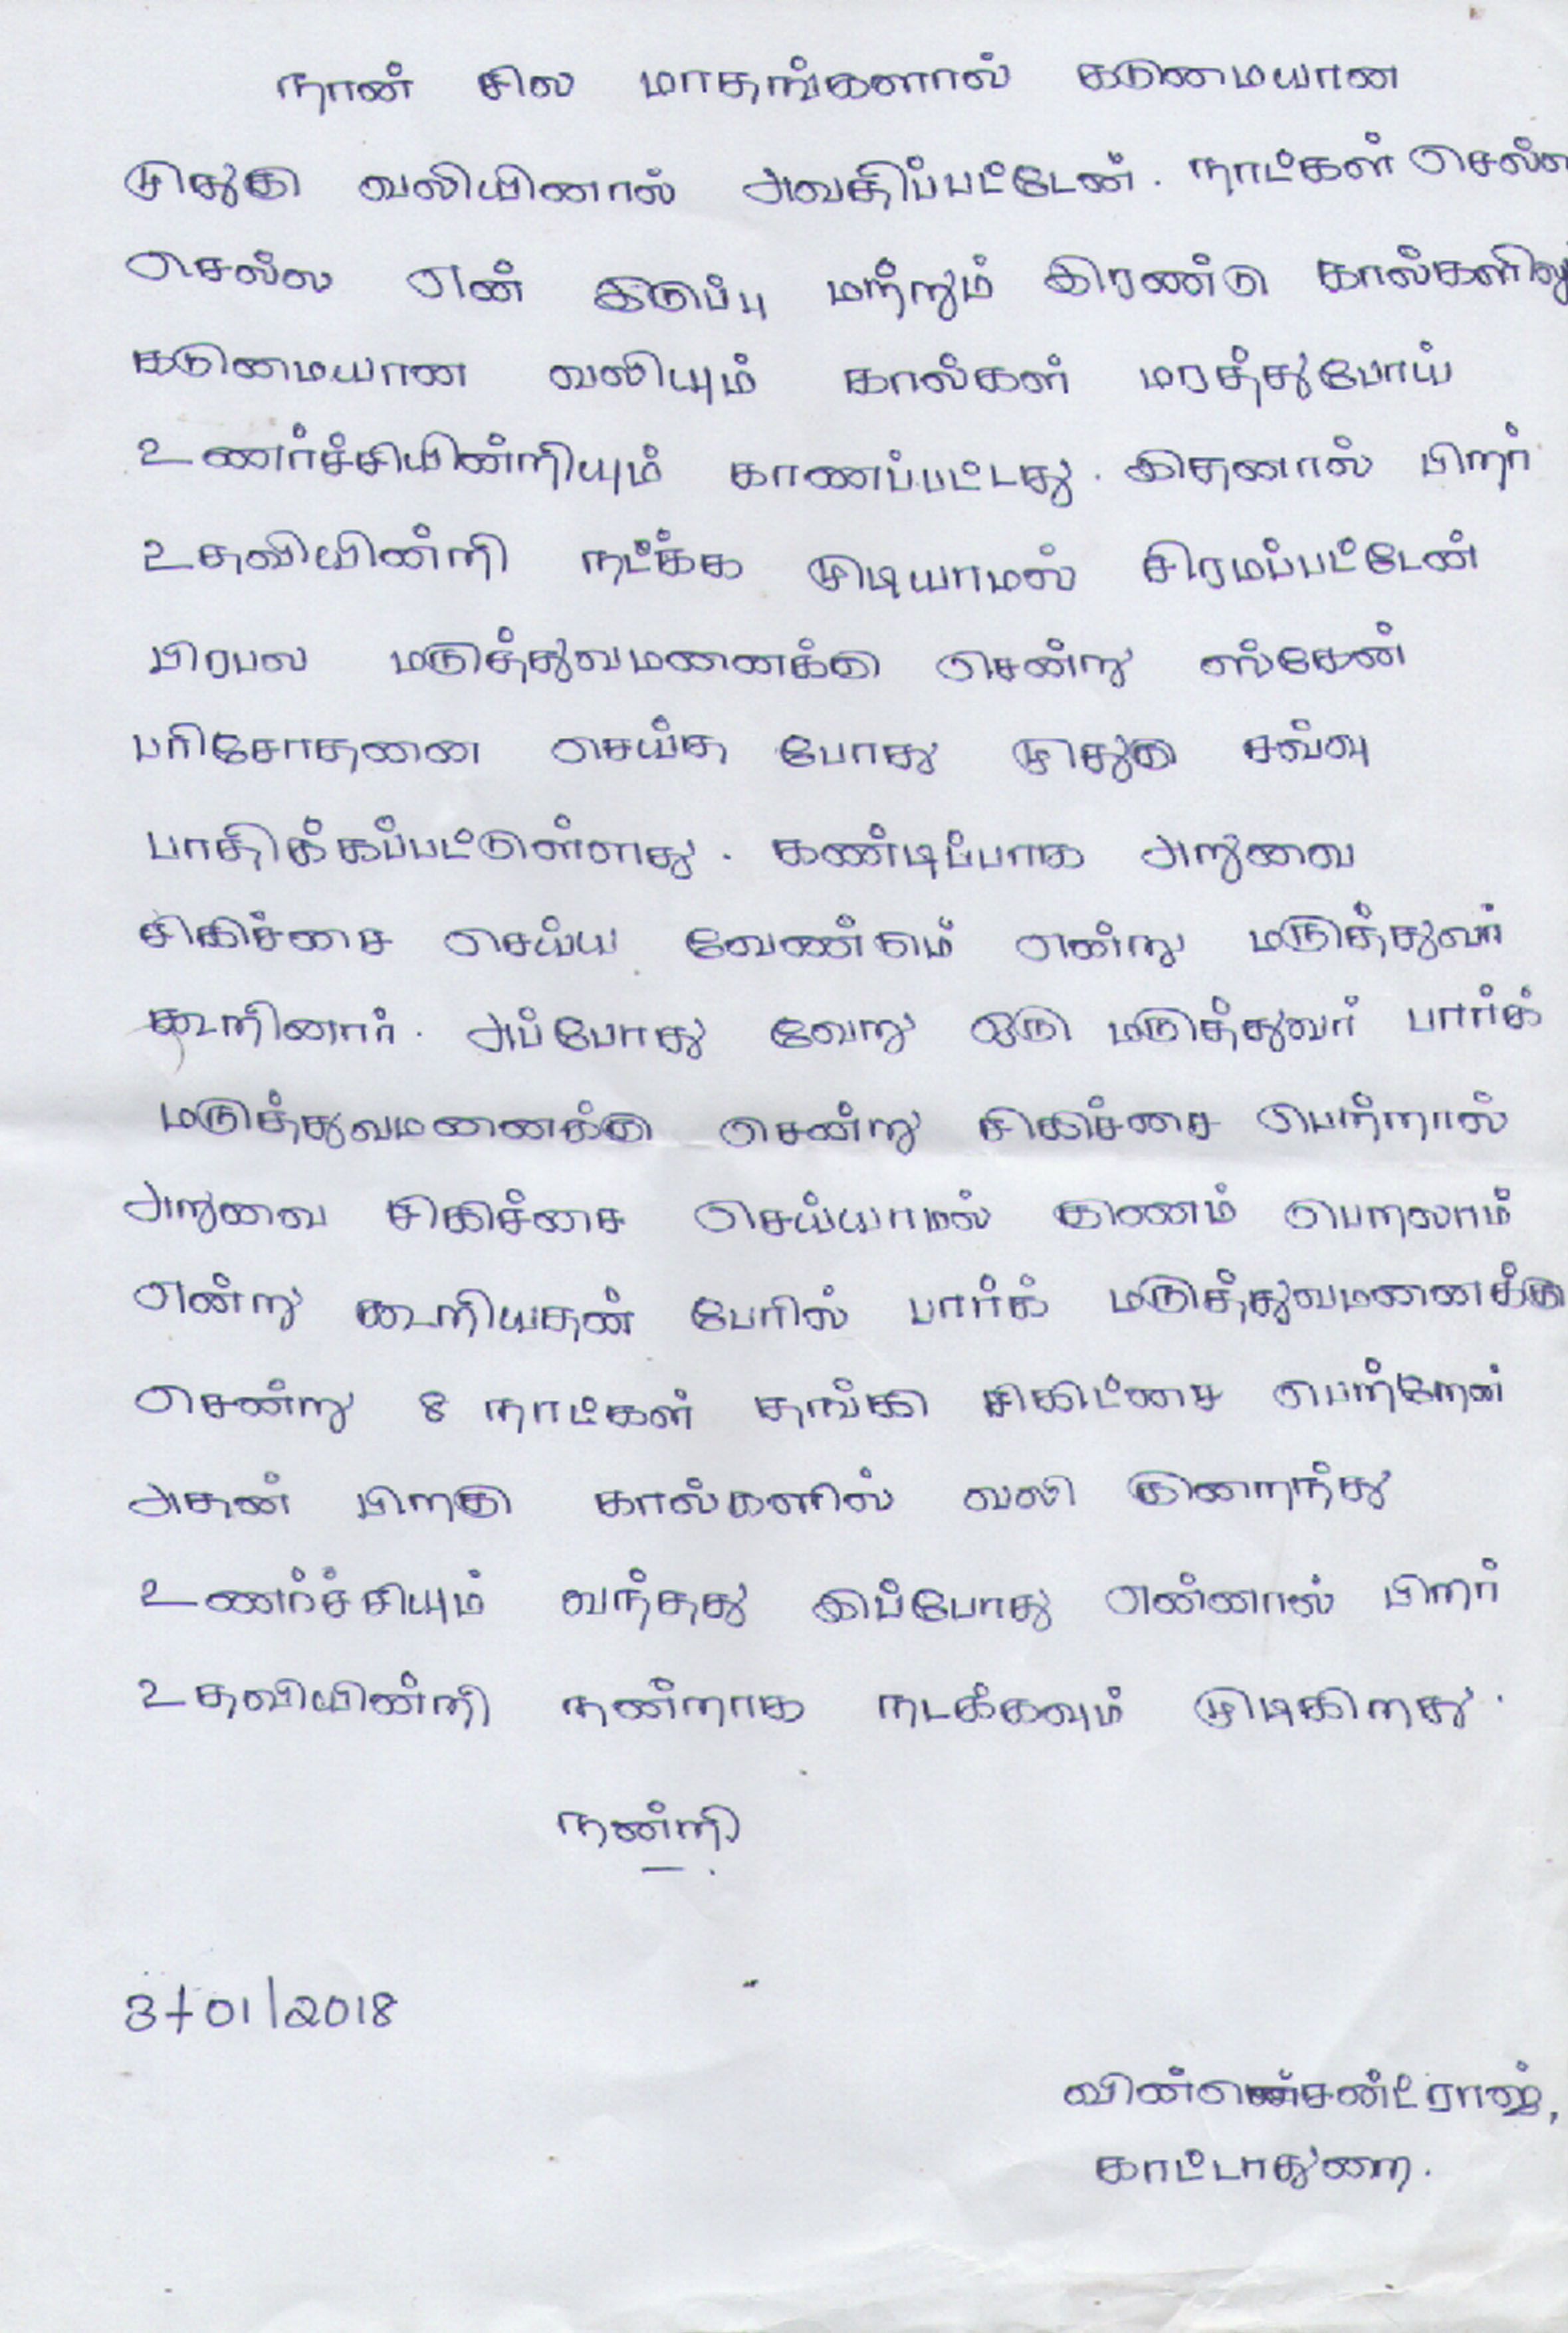 நான் சில மாதங்களால் கடுமையான
முதுகு வலியினால் அவதிப்பட்டேன். நாட்கள் செல்ல
செல்ல என் இடுப்பு மற்றும் இரண்டு கால்களிலு
கடுமையான வலியும் கால்கள் மரத்துபோய்
உணர்ச்சியின்றியும் காணப்பட்டது. இதனால் பிறர்
உதவியின்றி நட்க்க முடியாமல் சிரமப்பட்டேன்
பிரபல மருத்துவமனைக்கு சென்று ஸ்கேன்
பரிசோதனை செய்த போது முதுகு சவ்வு
பாதிக்கப்பட்டுள்ளது. கண்டிப்பாக அறுவை
சிகிச்சை செய்ய வேண்டும் என்று மருத்துவர்
கூறினார். அப்போது வேறு ஒரு மருத்துவர் பார்க்
மருத்துவமனைக்கு சென்று சிகிச்சை பெற்றால்
அறுவை சிகிச்சை செய்யாமல் குணம் பெறலாம்
என்று கூறியதன் பேரில் பார்க் மருத்துவமனைக்கு
சென்று 8 நாட்கள் தங்கி சிகிட்சை பெற்றேன்
அதன் பிறகு கால்களில் வலி குறைந்து
உணர்ச்சியும் வந்தது இப்போது என்னால் பிறர்
உதவியின்றி நன்றாக நடக்கவும் முடிகிறது.
நன்றி
3/01/2018
வின்சென்ட்ராஜ்,
காட்டாதுறை.